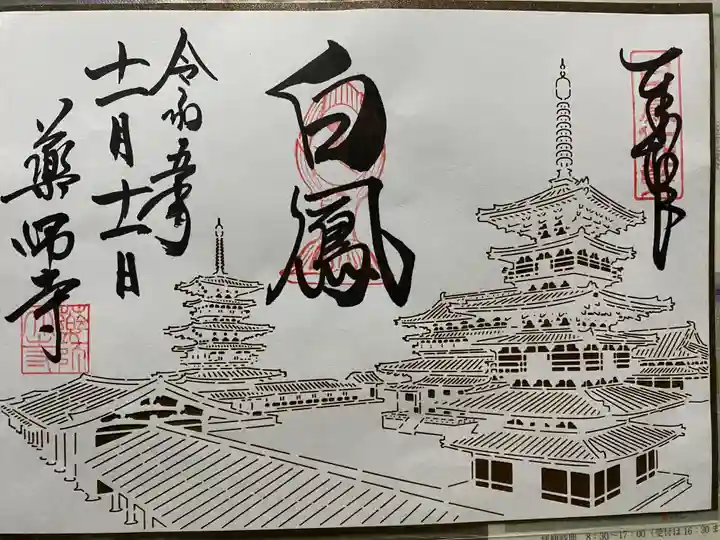 奉拝
白鳳
令和五年
十一月十一日
藥師寺
8:30~17:00(受付は16:30ま